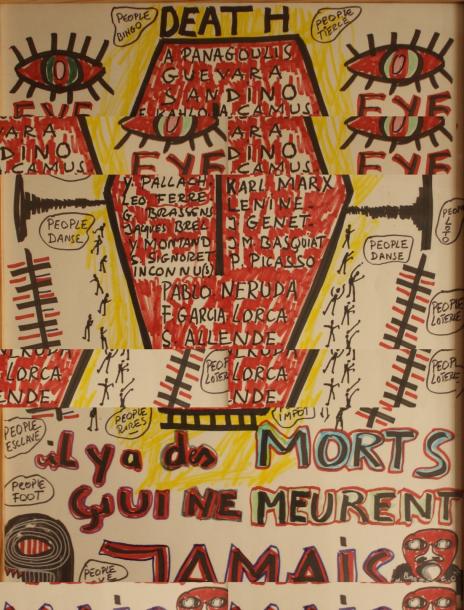 PEOPLE BINGO
DEATH
PEOPLE TIERCE
A PANAGOULIS
GUEVARA
DANDINO
F. KAHLO A. CAMUS
EYE
EYE
VARA
DINO
CAMUS
EYE
VARA
DINO
A. CAMUS
EYE
Y. PALLACH
LEO FERRE
G BRASSENS
JACQUES BREL
Y MONTAND
S. SIGNORET
INCONNU(S)
KARL MARX
LENINE
J GENET.
J M. BASQUIAT
P. PICASSO
PEOPLE DANSE
PEOPLE DANSE
PEOPLE LOTO
PEOPLE LOTERIE
PABLO NERUDA
F GARCIA LORCA
S. ALLENDE
LORCA
ENDE
PEOPLE LOTERIE
LORCA
ENDE
PEOPLE ESCLAVE
PEOPLE RARES
IMPOT
il y a des MORTS
PEOPLE FOOT
QUI NE MEURENT
JAMAIS
PEOPLE